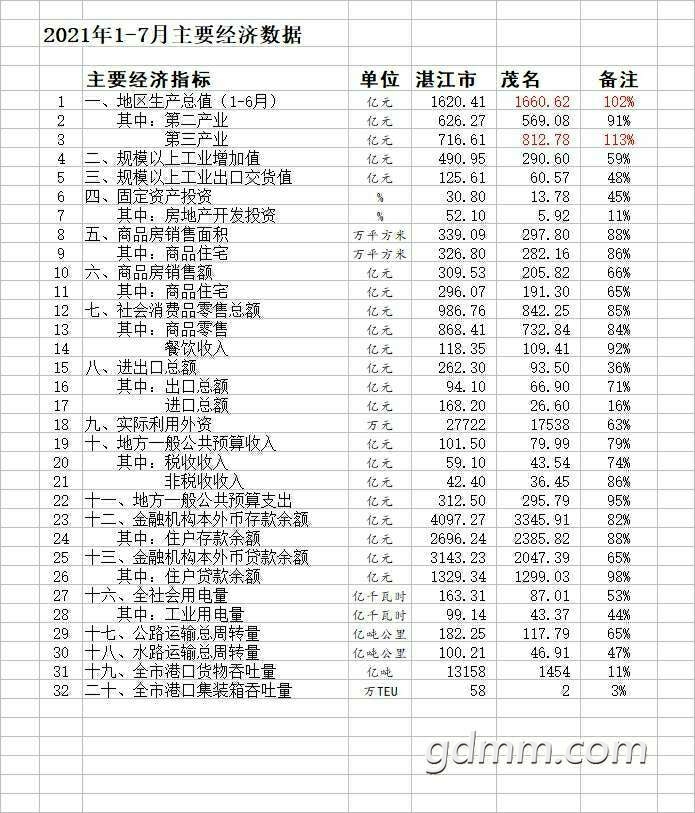 2021年1-7月主要经济数据
主要经济指标 单位 湛江市 茂名 备注
1 一、地区生产总值（1-6月） 亿元 1620.41 1660.62 102%
2 其中：第二产业 亿元 626.27 569.08 91%
3 第三产业 亿元 716.61 812.78 113%
4 二、规模以上工业增加值 亿元 490.95 290.60 59%
5 三、规模以上工业出口交货值 亿元 125.61 60.57 48%
6 四、固定资产投资 % 30.80 13.78 45%
7 其中：房地产开发投资 % 52.10 5.92 11%
8 五、商品房销售面积 万平方米 339.09 297.80 88%
9 其中：商品住宅 万平方米 326.80 282.16 86%
10 六、商品房销售额 亿元 309.53 205.82 66%
11 其中：商品住宅 亿元 296.07 191.30 65%
12 七、社会消费品零售总额 亿元 986.76 842.25 85%
13 其中：商品零售 亿元 868.41 732.84 84%
14 餐饮收入 亿元 118.35 109.41 92%
15 八、进出口总额 亿元 262.30 93.50 36%
16 其中：出口总额 亿元 94.10 66.90 71%
17 进口总额 亿元 168.20 26.60 16%
18 九、实际利用外资 万元 27722 17538 63%
19 十、地方一般公共预算收入 亿元 101.50 79.99 79%
20 其中：税收收入 亿元 59.10 43.54 74%
21 非税收收入 亿元 42.40 36.45 86%
22 十一、地方一般公共预算支出 亿元 312.50 295.79 95%
23 十二、金融机构本外币存款余额 亿元 4097.27 3345.91 82%
24 其中：住户存款余额 亿元 2696.24 2385.82 88%
25 十三、金融机构本外币贷款余额 亿元 3143.23 2047.39 65%
26 其中：住户贷款余额 亿元 1329.34 1299.03 98%
27 十六、全社会用电量 亿千瓦时 163.31 87.01 53%
28 其中：工业用电量 亿千瓦时 99.14 43.37 44%
29 十七、公路运输总周转量 亿吨公里 182.25 117.79 65%
30 十八、水路运输总周转量 亿吨公里 100.21 46.91 47%
31 十九、全市港口货物吞吐量 亿吨 13158 1454 11%
32 二十、全市港口集装箱吞吐量 万TEU 58 2 3%
gdmm.com